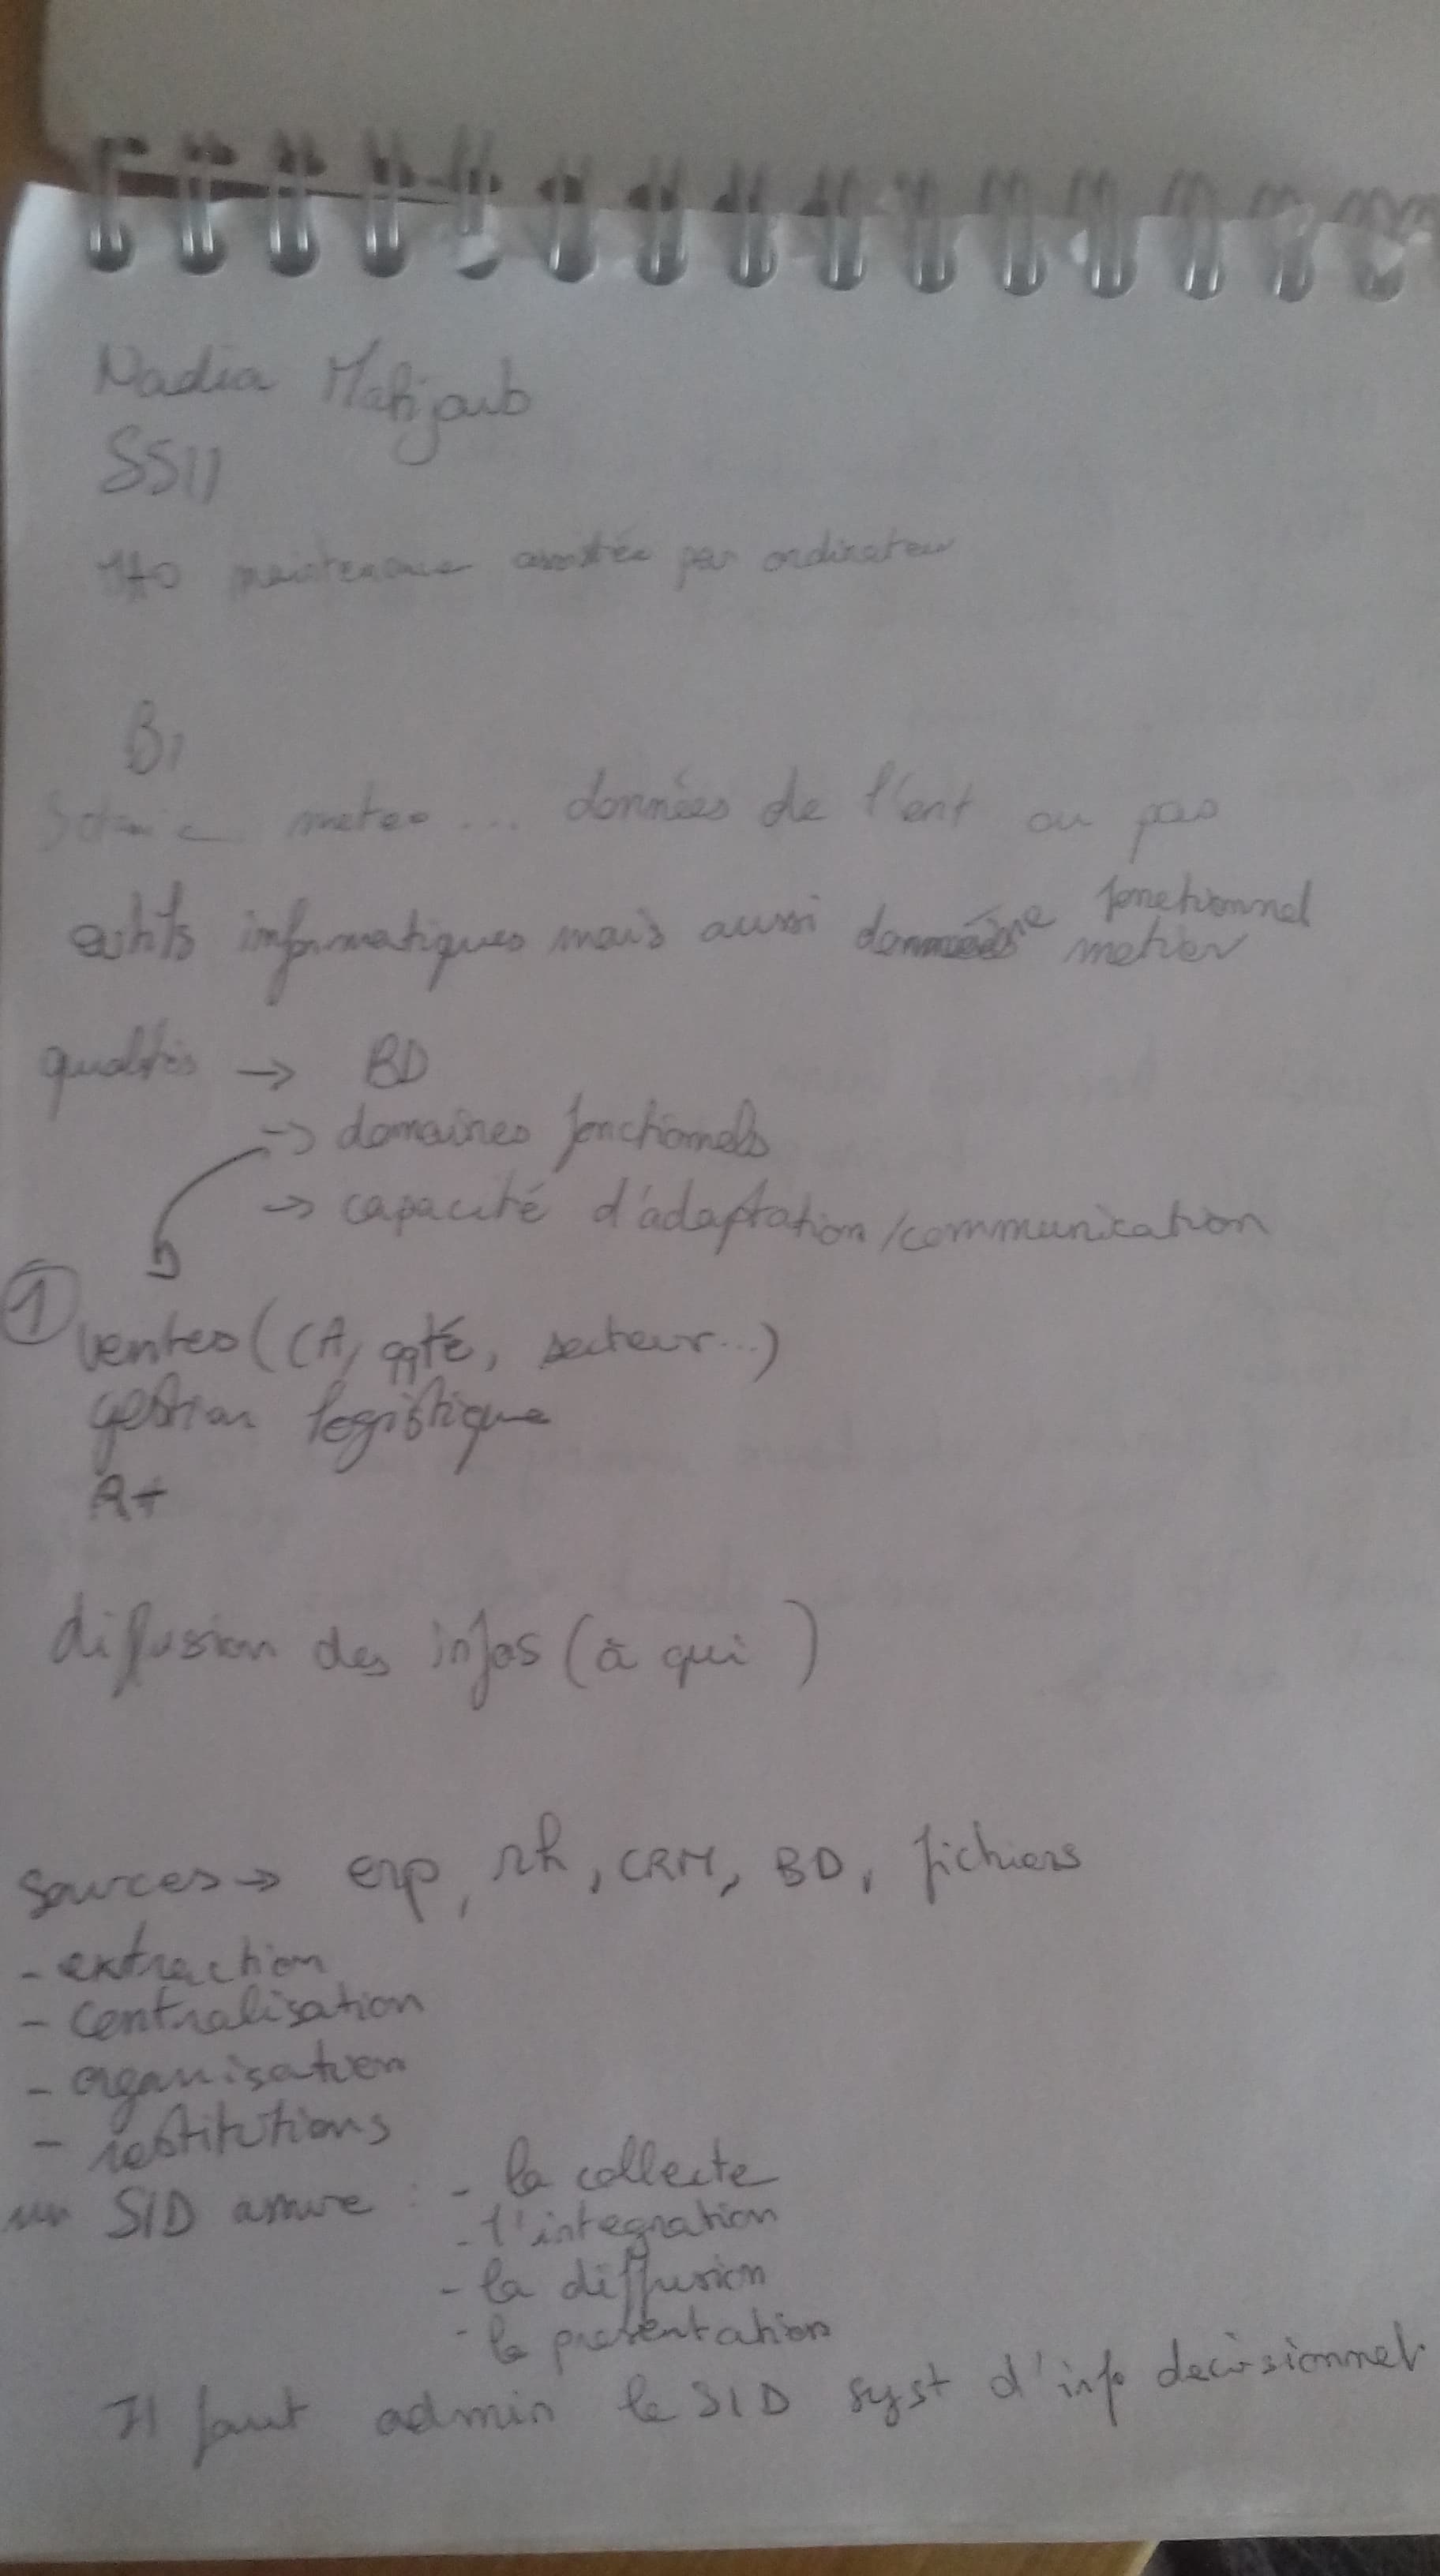 Nadia Mahjoub
SSII
MAO maintenance assistée par ordinateur
BI
meteo ... données de l'ent ou pas
outils informatiques mais aussi domaine fonctionnel
metier
qualités → BD
→ domaines fonctionnels
→ capacité d'adaptation/communication
① ventes (CA, qqté, secteur...)
gestion logistique
diffusion des infos (à qui )
Sources → erp, rh, CRM, BD, fichiers
- extraction
- centralisation
- organisation
- restitutions
un SID assure : - la collecte
- l'intégration
- la diffusion
- la presentation
Il faut admin le SID syst d'info decisionnel